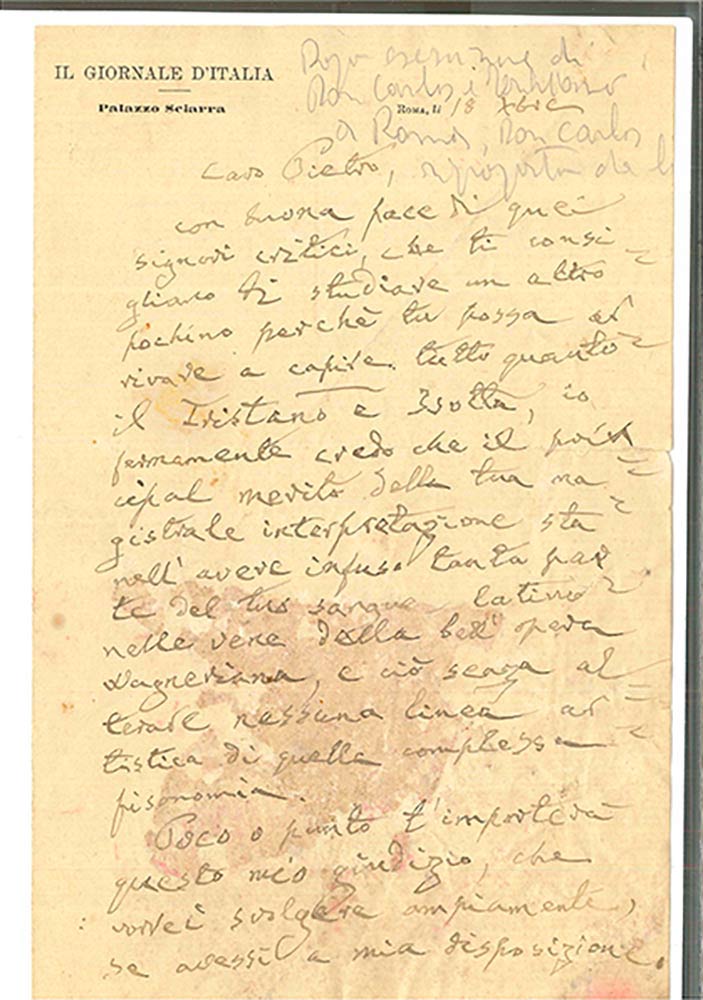 IL GIORNALE D'ITALIA
Palazzo Sciarra
Dopo esecuzione di
Don Carlos e Tristano
a Roma, Don Carlos
da
ROMA, li 18 Xbre
Caro Pietro,
con buona pace di quei
signori critici, che ti consi=
gliano di studiare un altro
pochino perchè tu possa ar=
rivare a capire tutto quanto
il Tristano e Isotta, io
fermamente credo che il prin=
cipal merito della tua ma=
gistrale interpretazione sta
nell'avere infuso tanta par=
te del tuo sangue latino
nelle vene della bell'opera
Wagneriana, e ciò senza al=
terare nessuna linea ar=
tistica di quella complessa
fisonomia.
Poco o punto t'importerà
questo mio giudizio, che
vorrei svolgere ampiamente,
se avessi a mia disposizione